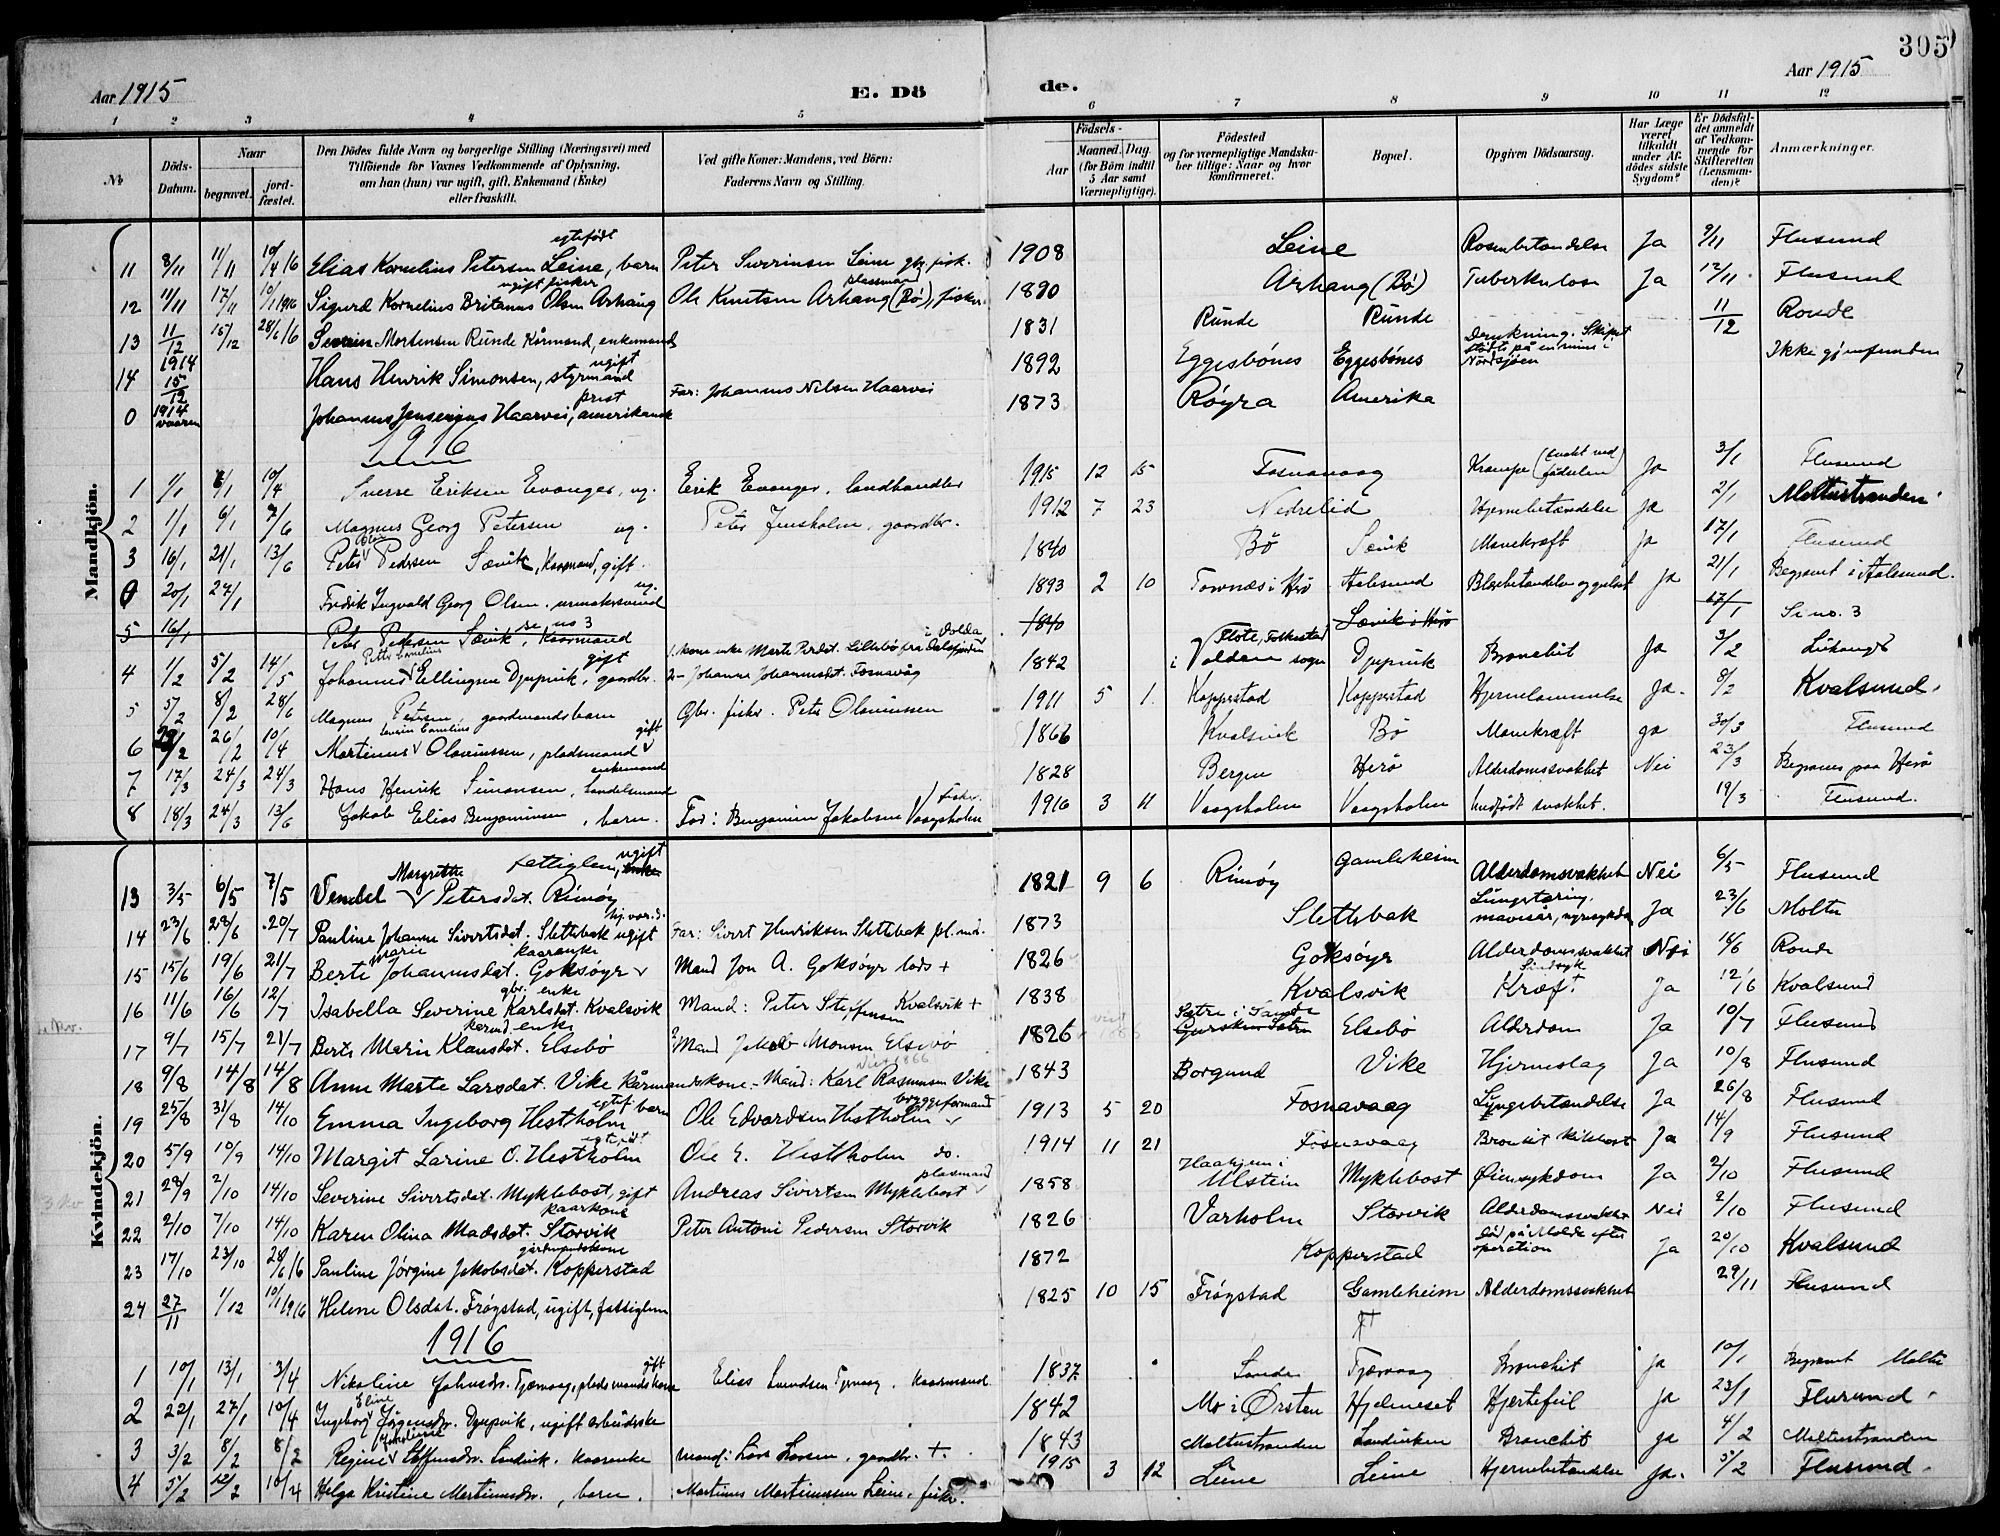 305
Aar 1915 E. Dö de. Aar 1915
1 2 3 4 5 6 7 8 9 10 11 12
№ Döds-Datum. Naar begravet. jord-fæstet. Den Dödes fulde Navn og borgerlige Stilling (Næringsvei) med Tilföiende for Voxnes Vedkommende af Oplysning, om han (hun) var ugift, gift, Enkemand (Enke) eller fraskilt. Ved gifte Koner: Mandens, ved Börn: Faderens Navn og Stilling. Födsels- Aar Maaned. Dag. (for Börn indtil 5 Aar samt Værnepligtige). Födested og for værnepligtige Mandskaber tillige: Naar og hvor konfirmeret. Bopæl. Opgiven Dödsaarsag. Har Læge været tilkaldt under Afdödes sidste Sygdom? Er Dödsfaldet anmeldt af Vedkommende for Skifteretten (Lensmanden)? Anmærkninger.
Mandkjön.
11 8/11 11/11 10/4 16 Elias Kornelius Petersen Leine, egtefödt barn Peter Severinsen Leine gbr. fisk. 1908 Leine Ja 9/11 Flusund
12 11/11 17/11 10/1 1916 Sigurd Kornelius Britanus Olsen Arhaug ugift fisker Ole Knutsen Arhaug (Bö), plassman fisker 1890 Arhaug (Bö) Tuberkulose Ja 12/11 Flusund
13 11/12 15/12 28/6 16 Severin Mortensen Runde Kårmand, enkemand 1831 Runde Runde 11/12 Ronde
14 1914 15/12 Hans Henrik Simonsen, styrmand ugift 1892 Eggesbönes Eggesbönes Drukning. Skipet stötte på en mine i Nordsjöen Ikke gjenfunden
0 1914 vaaren Johannes Jensenius Haarvei, amerikansk prest Far: Johannes Nilsen Haarvei 1873 Röyra Amerika
1916
1 1/1 6/1 10/4 Sverre Eriksen Evanger, ug. Erik Evanger, landhandler 1915 12 15 Fosnavaag Krampe Ja 3/1 Flusund
2 1/1 6/1 7/6 Magnus Georg Petersen ug. Peter Jensholm, gaardbr. 1912 7 23 Nedrelid Hjernebetændelse Ja 2/1 Moltustranden
3 16/1 21/1 13/6 Peter Pedersen Sævik, Kaarmand, gift. 1840 Bö Sævik Mavekræft Ja 17/1 Flusund
0 20/1 27/1 Fredik Ingvald Georg Olsen, urmakersvend ug. 1893 2 10 i Herö Aalesund Ja 21/1 Begravet i Aalesund.
5 16/1 Peter Pedersen Sævik, Kaarmand se no 3 1840 Sævik i Herö 17/1 Se no. 3
4 1/2 5/2 14/5 Johannes Petter Cornelius Ellingsen Djupvik, gaardbr. gift 1. kone enke Marte Perdst. Lillebö fra Dalsfjorden i Volda 2- Johanne Johannesdat. Fosnavåg 1842 i Volden sogn Djupvik Bronchit Ja 3/2
5 5/2 8/2 28/6 Magnus Petersen, gaardmandsbarn Gbr. fisker Peter Olavinssen 1911 5 1 Kopperstad Kopperstad Hjernelammelse Ja. 8/2 Kvalsund.
6 23/2 26/2 10/4 Martinus Severin Cornelius Olavinssen, pladsmand gift 1866 Kvalsvik Bö Mavekræft ja 30/3 Flusund
7 17/3 24/3 24/3 Hans Henrik Simonsen, handelsmand enkemand 1828 Bergen Herö Alderdomssvakhet Nei 23/3 Begraves paa Herö
8 18/3 24/3 13/6 Jakob Elias Benjaminsen, barn. Far: Benjamin Jakobsen Vaagsholm fisker 1916 3 11 Vaagsholm Vaagsholm Medfödt svakhet. 19/3 Flusund.
Kvindekjön.
13 3/5 6/5 7/5 Vendel Margrethe Petersdat. Rimöy fattiglem, ugift 1821 9 6 Rimöy Gamleheim Alderdomssvakhet Nei 6/5 Flusund
14 23/6 28/6 20/7 Pauline Johanne Sivertsdat. Slettebak ugift Far: Sivert Henriksen Slettebak pl.md. 1873 Slettebak Lungetæring, mavesår, nyresykdom Ja 23/6 Moltu
15 15/6 19/6 21/7 Berte Marie Johannesdat. Goksöyr kaarenke Mand Jon A. Goksöyr + 1826 Goksöyr Alderdomssvakhet Nei 16/6 Ronde
16 11/6 16/6 12/7 Isabella Severine Karlsdat. Kvalsvik gbr. enke Mand: Peter Steffensen Kvalsvik + 1838 Kvalsvik Kræft Ja 12/6 Kvalsund
17 9/7 15/7 21/7 Berte Marie Klausdat. Elsebö enke Mand Jakob Monsen Elsebö 1826 Sætre i Sande Gursken Sætre Elsebö Alderdom Ja 10/7 Flusund
18 9/8 14/8 14/8 Anne Marte Larsdat. Vike kårmandskone Mand: Karl Rasmussen Vike 1843 Borgund Vike Hjerneslag Ja 10/8 Flusund
19 25/8 31/8 14/10 Emma Ingeborg Hestholm egtef. barn Ole Edvardsen Hestholm bryggeformand 1913 5 20 Fosnavaag Lungebetændelse Ja 26/8 Flusund
20 5/9 10/9 14/10 Margit Larine O. Hestholm egtefödt Ole E. Hestholm do. 1914 11 21 Fosnavaag Bronkit kikhost Ja 14/9 Flusund
21 28/9 2/10 14/10 Severine Sivertsdat. Myklebost, gift Andreas Sivertsen Myklebost pladsmand 1858 Haahjem i Ulstein Myklebost Ja 2/10 Flusund
22 2/10 7/10 14/10 Karen Olina Madsdat. Storvik kaarkone Peter Antoni Pedersen Storvik 1826 Varholm Storvik Alderdomssvakhet Nei 2/10 Flusund
23 17/10 23/10 28/6 16 Pauline Jörgine Jakobsdat. Kopperstad gårdmandskone 1872 Kopperstad död på Molde efter operation Ja 20/10 Kvalsund
24 27/11 1/12 10/1 1916 Helene Olsdat. Frögstad, ugift, fattiglem 1825 10 15 Frögstad Gamleheim Alderdomssvakhet 29/11 Flusund
1916
1 10/1 13/1 3/4 Nikoline Johnsdr. Tjærvaag, pladsmandskone gift Elias Tjærvaag, Kaarmand. 1837 Sande Tjærvaag Bronchit ja 10/1 Begravet Moltu
2 22/1 27/1 10/4 Ingeborg Eline Jörgensdr. Djupvik, ugift arbeiderske 1842 Mo i Örsten Hjelmeset Hjertefeil Ja 23/1 Flusund.
3 3/2 8/2 8/2 Regine Jakobine Steffensdr. Sandvik, kaarenke Mand: Lars Larsen, gaardbr. + 1843 Moltustranden Sandviken Bronchit ja 4/2 Moltustranden
4 5/2 12/2 10/4 Helga Kristine Martinusdr., barn. Martinus Martinussen Leine, fisker. 1915 3 12 Leine Leine Hjernebetændelse Ja. 5/2 Flusund.